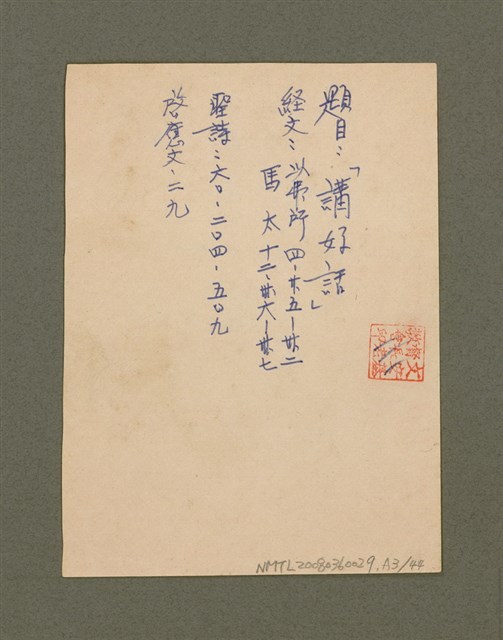 題目：「講好話」
経文：以弗所 四、廿五－卅二
馬太 十二、卅六－卅七
聖詩：六〇、二〇四、五〇九
啓應文、二九
NMTL20080360029.A3/44